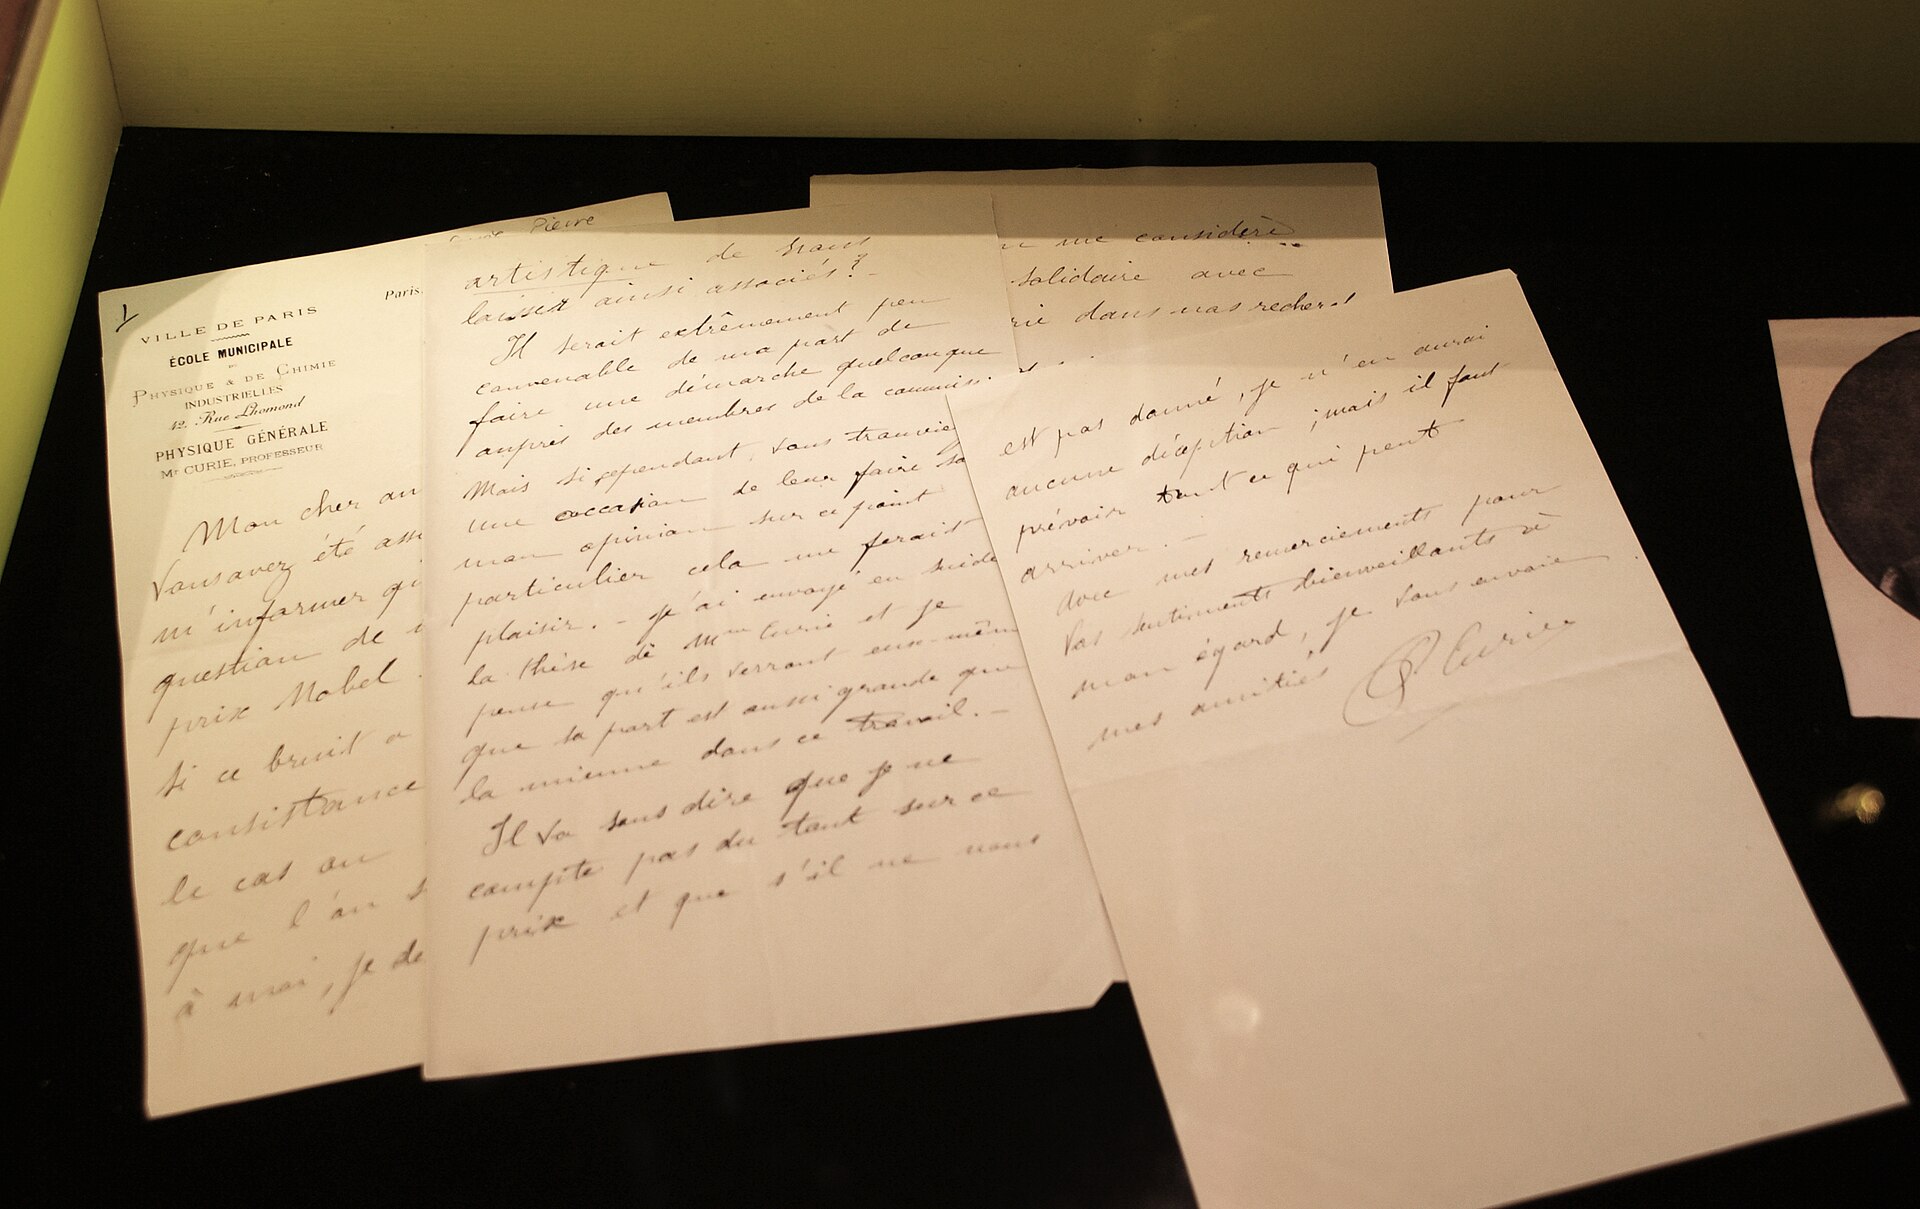 Pierre
1
Paris,
VILLE DE PARIS
ÉCOLE MUNICIPALE
DE
PHYSIQUE & DE CHIMIE
INDUSTRIELLES
42, Rue Lhomond
PHYSIQUE GÉNÉRALE
Mr CURIE, PROFESSEUR
Mon cher am
Vous avez été ass
m'informer qu
question de
prix Nobel.
Si ce bruit a
consistance
le cas où
que l'on s
à moi, je de
artistique de nous
laisser ainsi associés? -
Il serait extrêmement peu
convenable de ma part de
faire une démarche quelconque
auprès des membres de la commiss
Mais si cependant, vous trouviez
une occasion de leur faire sa
mon opinion sur ce point
particulier cela me ferait
plaisir. - J'ai envoyé en Suède
la thèse de Mme Curie et je
pense qu'ils verront eux-même
que sa part est aussi grande que
la mienne dans ce travail. -
Il va sans dire que je ne
compte pas du tout sur ce
prix et que s'il ne nous
me considère
solidaire avec
rie dans nos recher
est pas donné, je n'en aurai
aucune déception; mais il faut
prévoir tout ce qui peut
arriver. -
Avec mes remerciements pour
Vos sentiments bienveillants à
mon égard, je vous envoie
mes amitiés
P. Curie